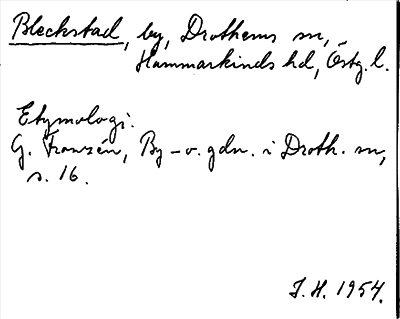 Bleckstad, by, Drothems sn,
Hammarkinds hd, Östg. l.
Etymologi.
G. Franzén, By- o. gdn. i Droth. sn,
s. 16.
J. H. 1954.